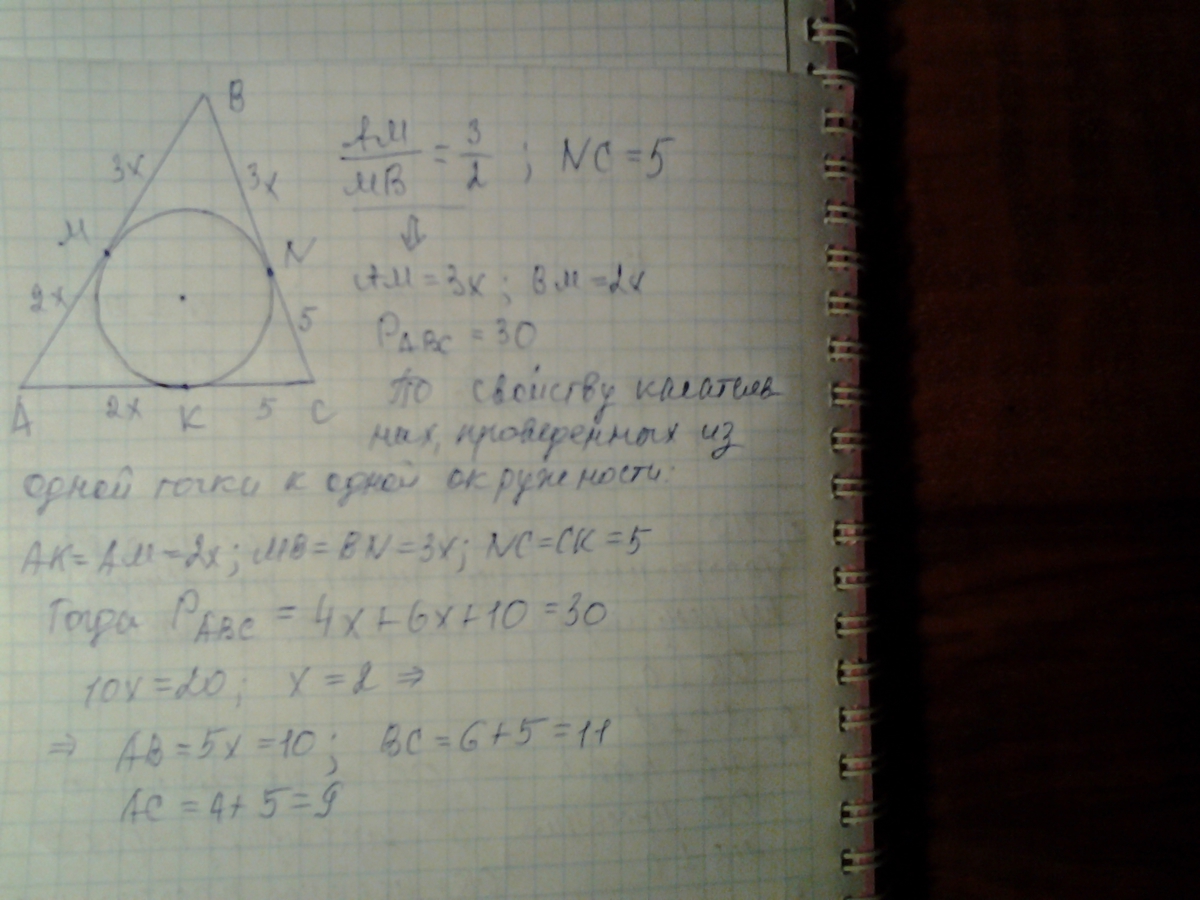 B
3x 3x
M N
2x 5
A 2x K 5 C
AM/MB = 3/2 ; NC = 5
⇕
AM = 3x ; BM = 2x
P_ABC = 30
По свойству касатель
ных, проведенных из
одной точки к одной окружности:
AK = AM = 2x ; MB = BN = 3x ; NC = CK = 5
Тогда P_ABC = 4x + 6x + 10 = 30
10x = 20 ; x = 2 ⇒
⇒ AB = 5x = 10 ; BC = 6 + 5 = 11
AC = 4 + 5 = 9